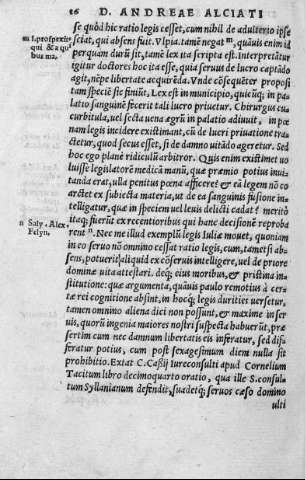 26 D. ANDREAE ALCIATI
se quòd hic ratio legis cesset, cum nihil de adulterio ipse
sciat, qui absens fuit. Vlpia. tamẽ negat m, quãuis enim id
perquam durũ sit, tamẽ lex ita scripta est. Interpretãtur
igitur doctores hoc ita esse, quia seruus de lucro captãdo
agit, nẽpe libertate acquirẽda. Vnde cõsequẽter proposi
tam speciẽ sic finiũt. Lex est in municipio, quicũq; in pa
latio sanguinẽ fecerit tali lucro priuetur. Chirurgus cu
curbitula, uel secta uena ægrũ in palatio adiuuit, in pœ
nam legis incidere existimant, cũ de lucri priuatione tra
ctetur, quod secus esset, si de damno uitãdo ageretur. Sed
hoc ego planè ridiculũ arbitror. Quis enim existimet uo
luisse legislatorẽ medicã manũ, quæ præmio potius inui
tanda erat, ulla penitus pœna afficere? & ea legem nõ co
arctet ex subiecta materia, ut de ea sanguinis fusione in-
telligatur, quæ in speciem uel leuis delicti cadat? meritò
itaq; fuerũt ex recentioribus qui hanc decisionẽ reproba
rent n. Nec me illud exemplũ legis Iuliæ mouet, quoniam
in eo seruo nõ omnino cessat ratio legis, cum, tametsi ab-
sens, potuerit aliquid ex cõseruis intelligere, uel de priore
dominæ uita attestari. deq; eius moribus, & pristina in-
stitutione: quæ argumenta, quãuis paulo remotius à cer-
tæ rei cognitione absint, in hocq; legis durities uersetur,
tamen omnino aliena dici non possunt, & maxime in ser
uis, quorũ ingenia maiores nostri suspecta habuerũt, præ
sertim cum nec damnum libertatis eis inferatur, sed dif-
feratur potius, cum post sexagesimum diem nulla sit
prohibitio. Extat C. Cassij Iureconsulti apud Cornelium
Tacitum libro decimoquarto oratio, qua ille S. consul-
tum Syllanianum defendit, suadetq; seruos cæso domino
ulti
m l. prospexit
qui & a qui
bus ma.
n Saly. Alex.
Felyn.